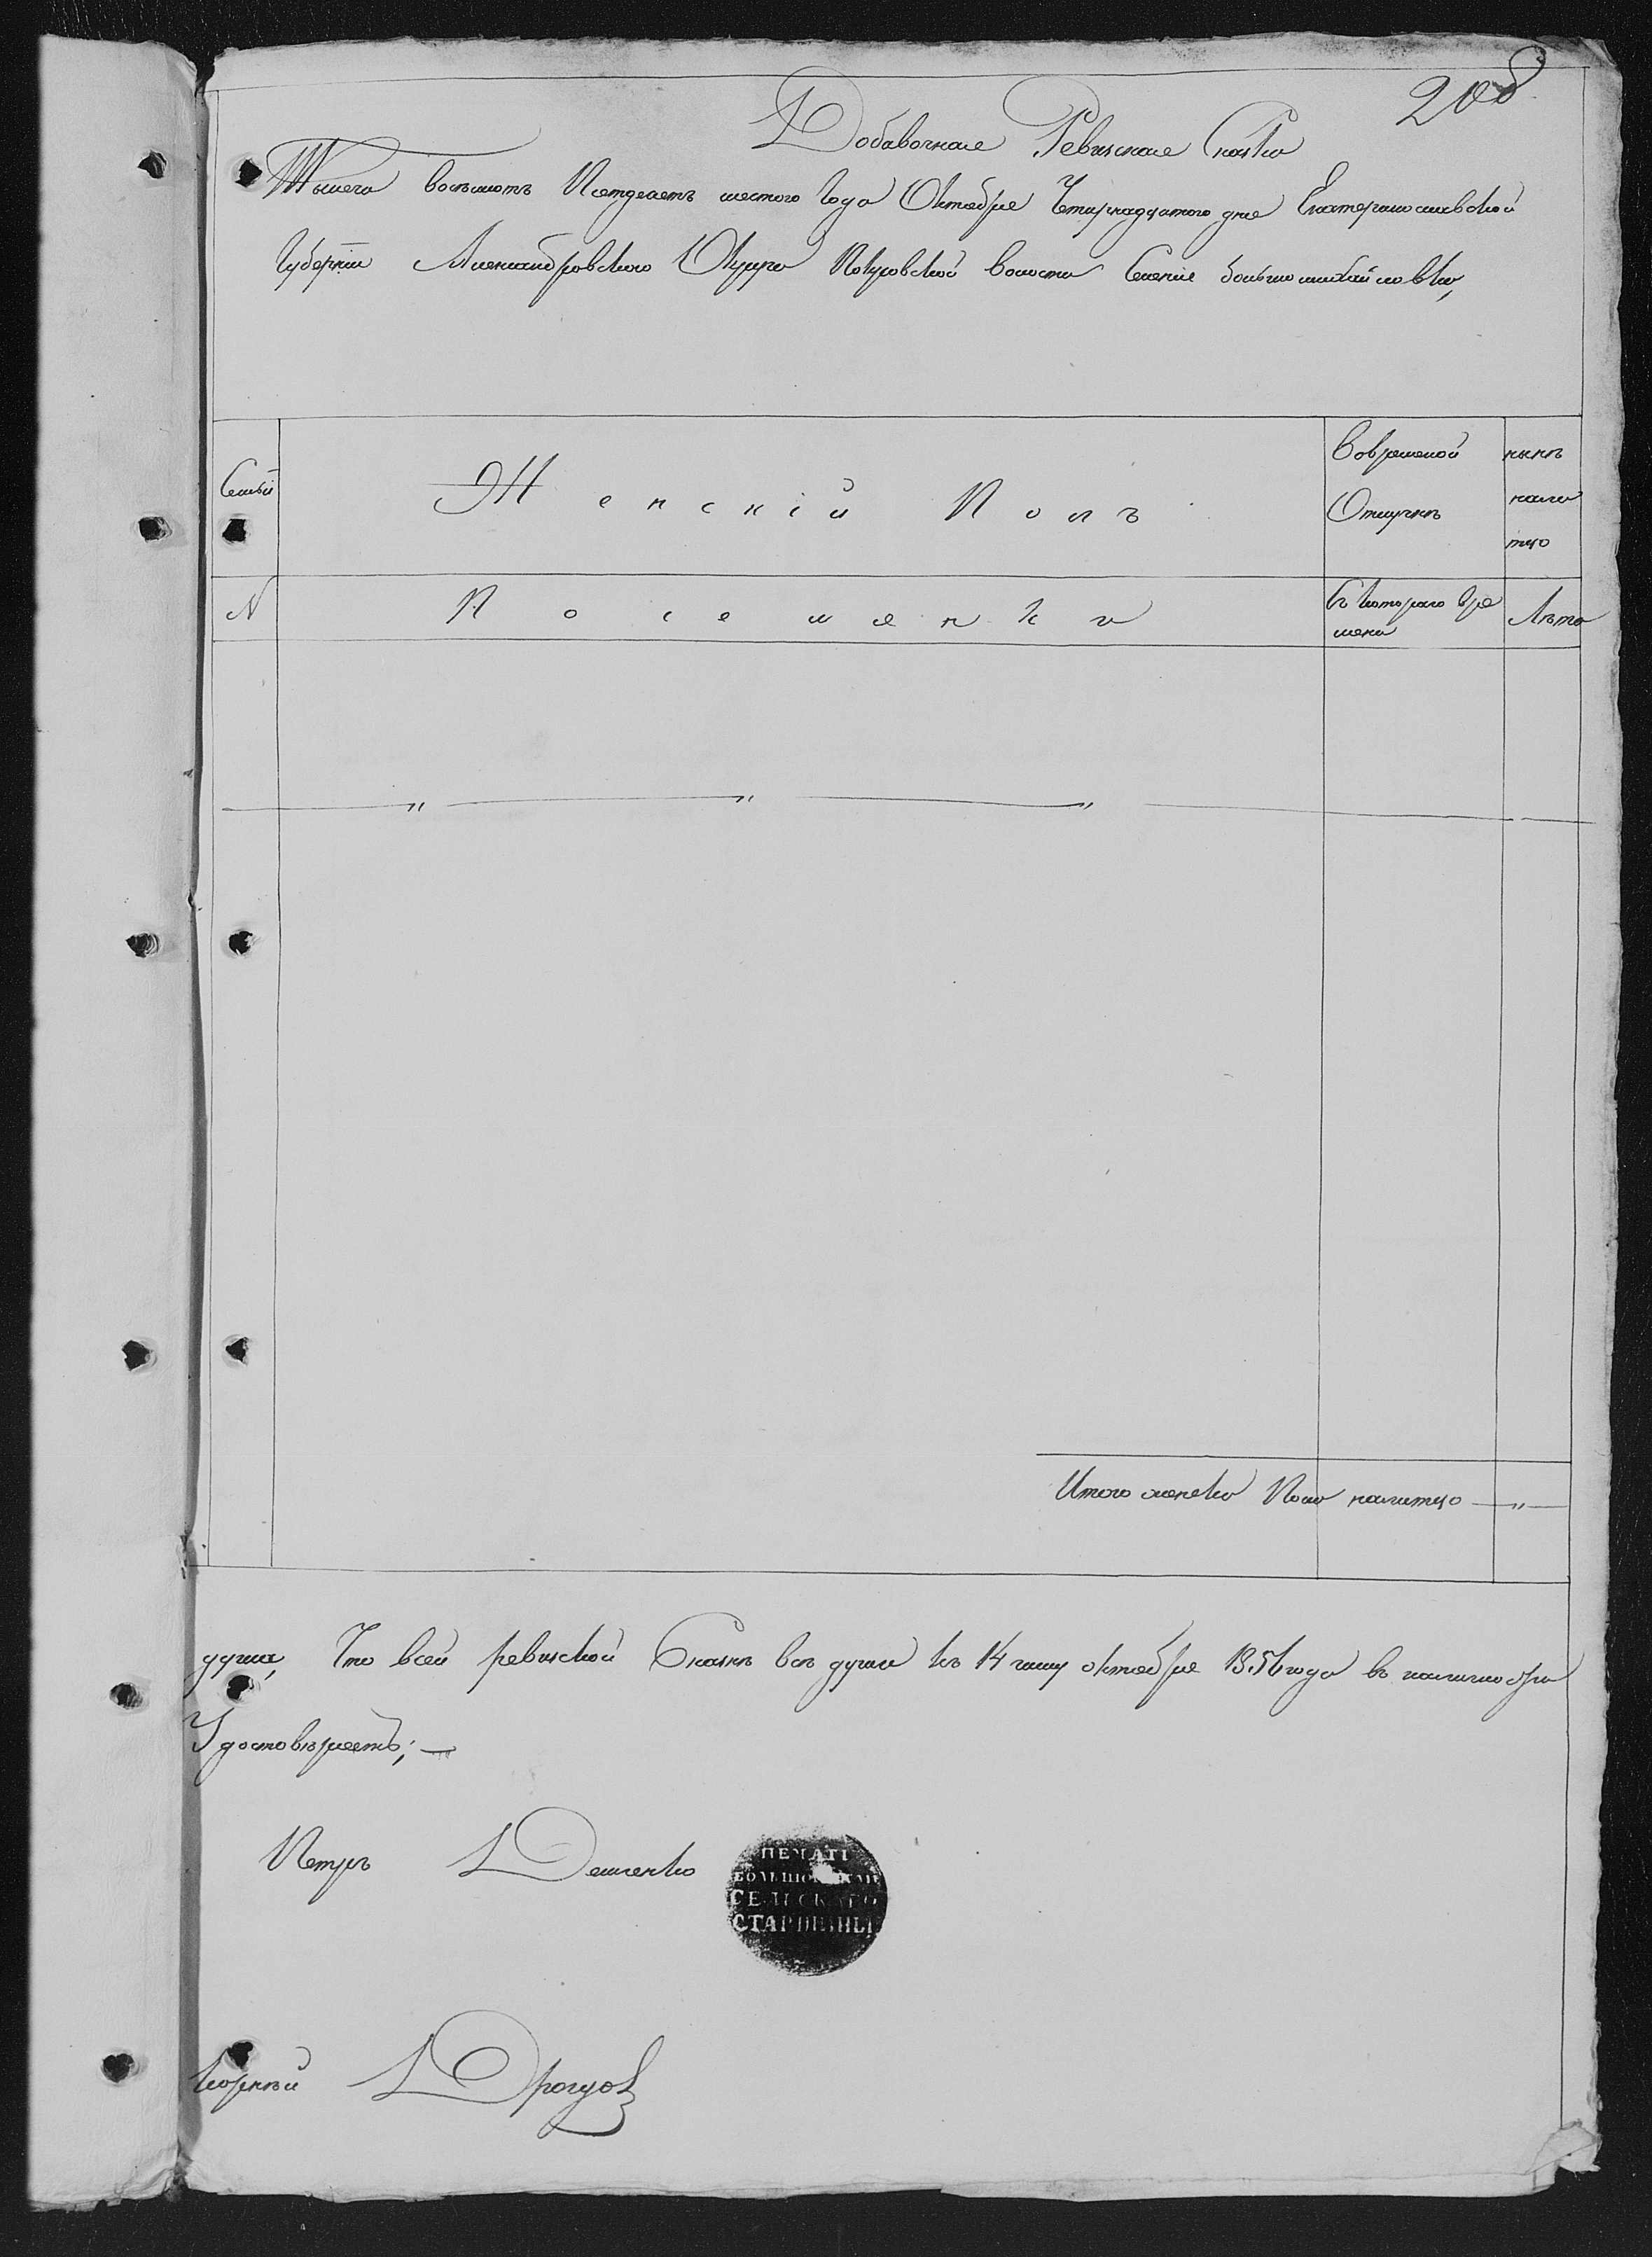 208
Добавочная Ревизская Сказка
Тысеча восемьсотъ Пятдесятъ шестого Года Октября Четырнадцатого дня Екатеринославской
Губернии Александровского Округа Покровской волости Селения большомихайловки,
Семьи
Женский Полъ
Вовременой Отлучкѣ
нынѣ налицо
N
Поселянки
Съ которого вре мени
Лѣта
„ „ „
Итого женска Пола налицо — „ —
душа, Что всей ревиской Сказкѣ всѣ души къ 14 числу октября 1856 года въ
Удостовѣряетъ; —
Петръ
ПЕЧАТЬ
СЕЛЬСКАГО
СТАРШИНЫ
Корнѣй